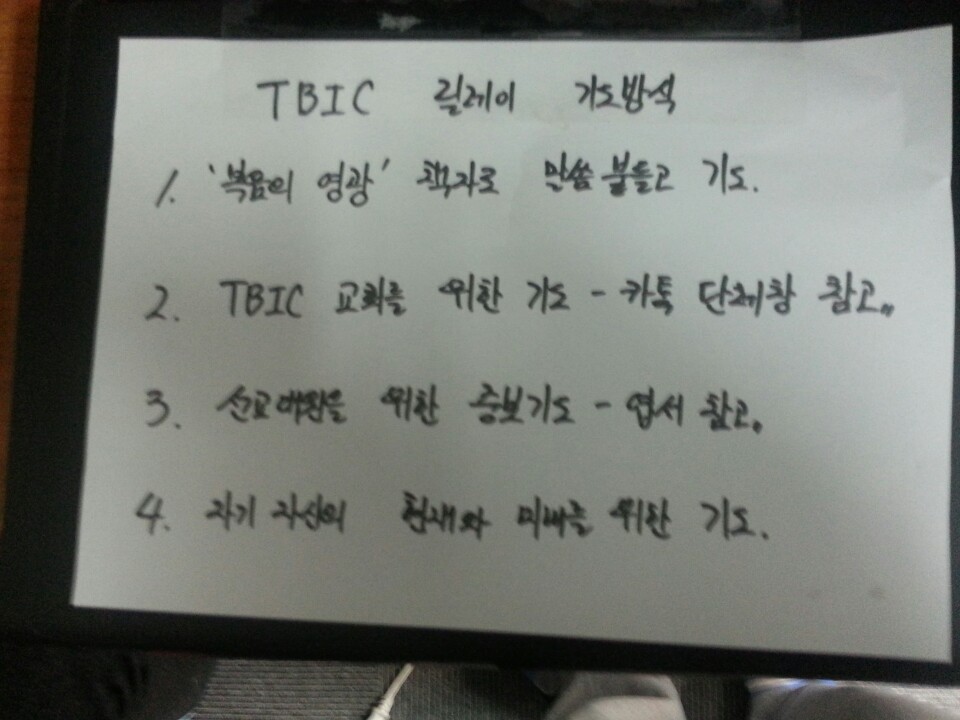 TBIC 릴레이 기도방식
1. '복음의 영광' 책자로 말씀 붙들고 기도.
2. TBIC 교회를 위한 기도 - 카톡 단체창 참고..
3. 선교대원을 위한 중보기도 - 엽서 참고..
4. 자기 자신의 현재와 미래를 위한 기도.